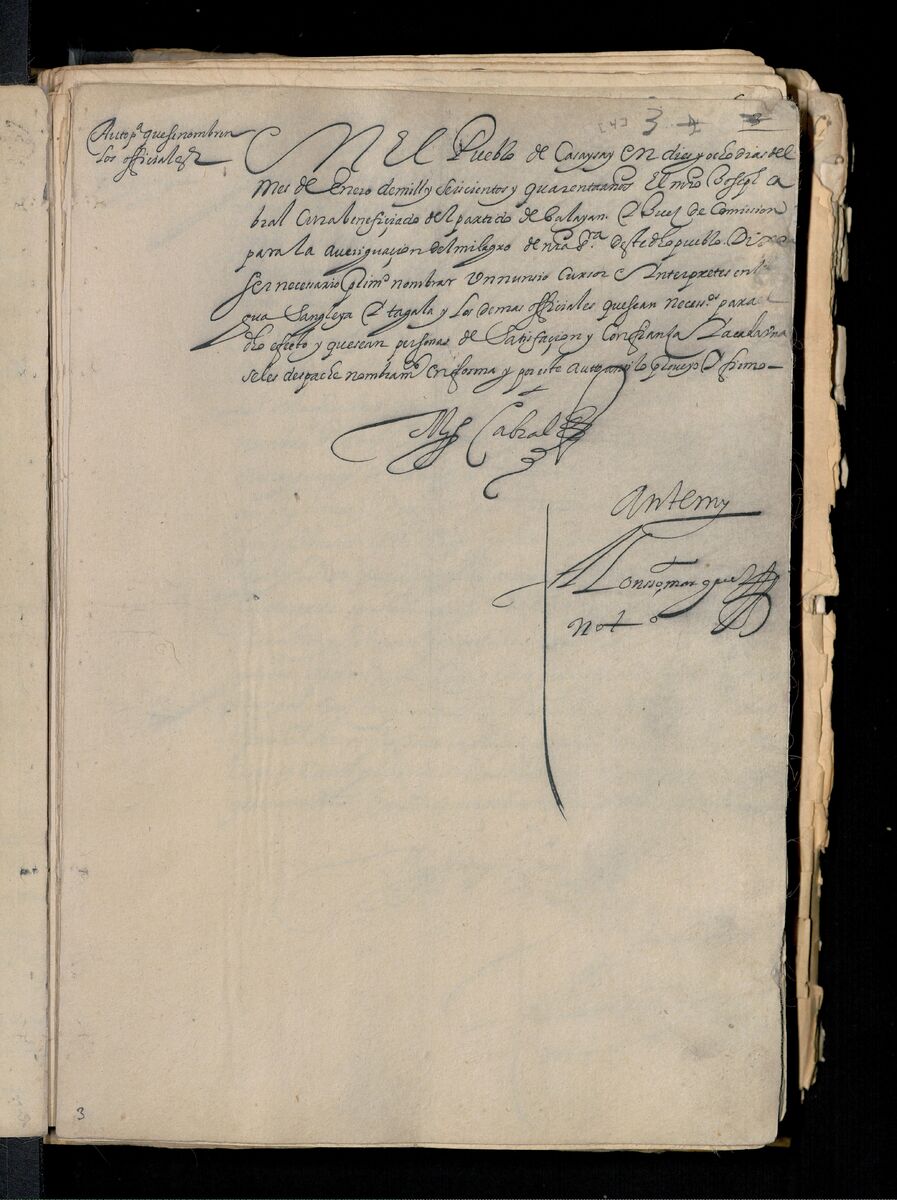 [4] 3 4 3
Auto pa que se nombren
los officiales
EN El Pueblo de Casaysay en dies y ocho dias del
Mes de Enero de mill y Seiscientos y quarenta años El mro Bo Joseph Ca
bral Cura beneficiado del partido de Balayan Y Juez de Comision
para la averiguaçion del milagro de nra Sra deste dho pueblo Dixo
Ser necesario nombrar Un nunsio Cursor E Interpretes en len
gua Sangleya Y tagala y los demas officiales que sean necesos para el
dho efeto y que sean personas de Satisfaçion y Confiansa Y a cada una
se les despache nombramto en forma y por este Auto ansi lo proveyo Y firmo—
Cabral
Ante my
Alonsso marques
noto
3